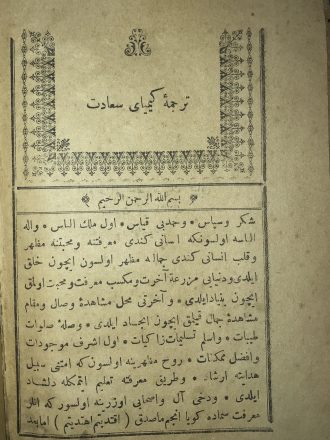 ترجمهٔ كيميای سعادت
بسم الله الرحمن الرحيم
شكر وسپاس * وحمدبی قياس * اول ملك الناس * واله
الناسه اولسونكه انسانی كندی معرفتنه ومحبتنه مظهر
وقلب انسانی كندی جماله مظهر اولسون ايچون خلق
ايلدی ودنيايی مزرعهٔ آخرت ومكسب معرفت ومحبت اولمق
ايچون بنياد ايلدی * وآخرتی محل مشاهدهٔ وصال ومقام
مشاهدهٔ جمال قيلمق ايچون ايجاد ايلدی * وصلهٔ صلوات
طيبات * واسلم تسليمات زاكيات * اول اشرف موجودات
وافضل ممكنات * روح مطهرينه اولسون كه امتنی سبيل
هدايته ارشاد * وطريق معرفته تعليم ايتمكله دلشاد
ايلدی * ودخی آل واصحابی اوزرينه اولسون كه انلر
معرفت سماده كويا انجم ماصدق ( اقتديتم اهتديتم ) امابعد